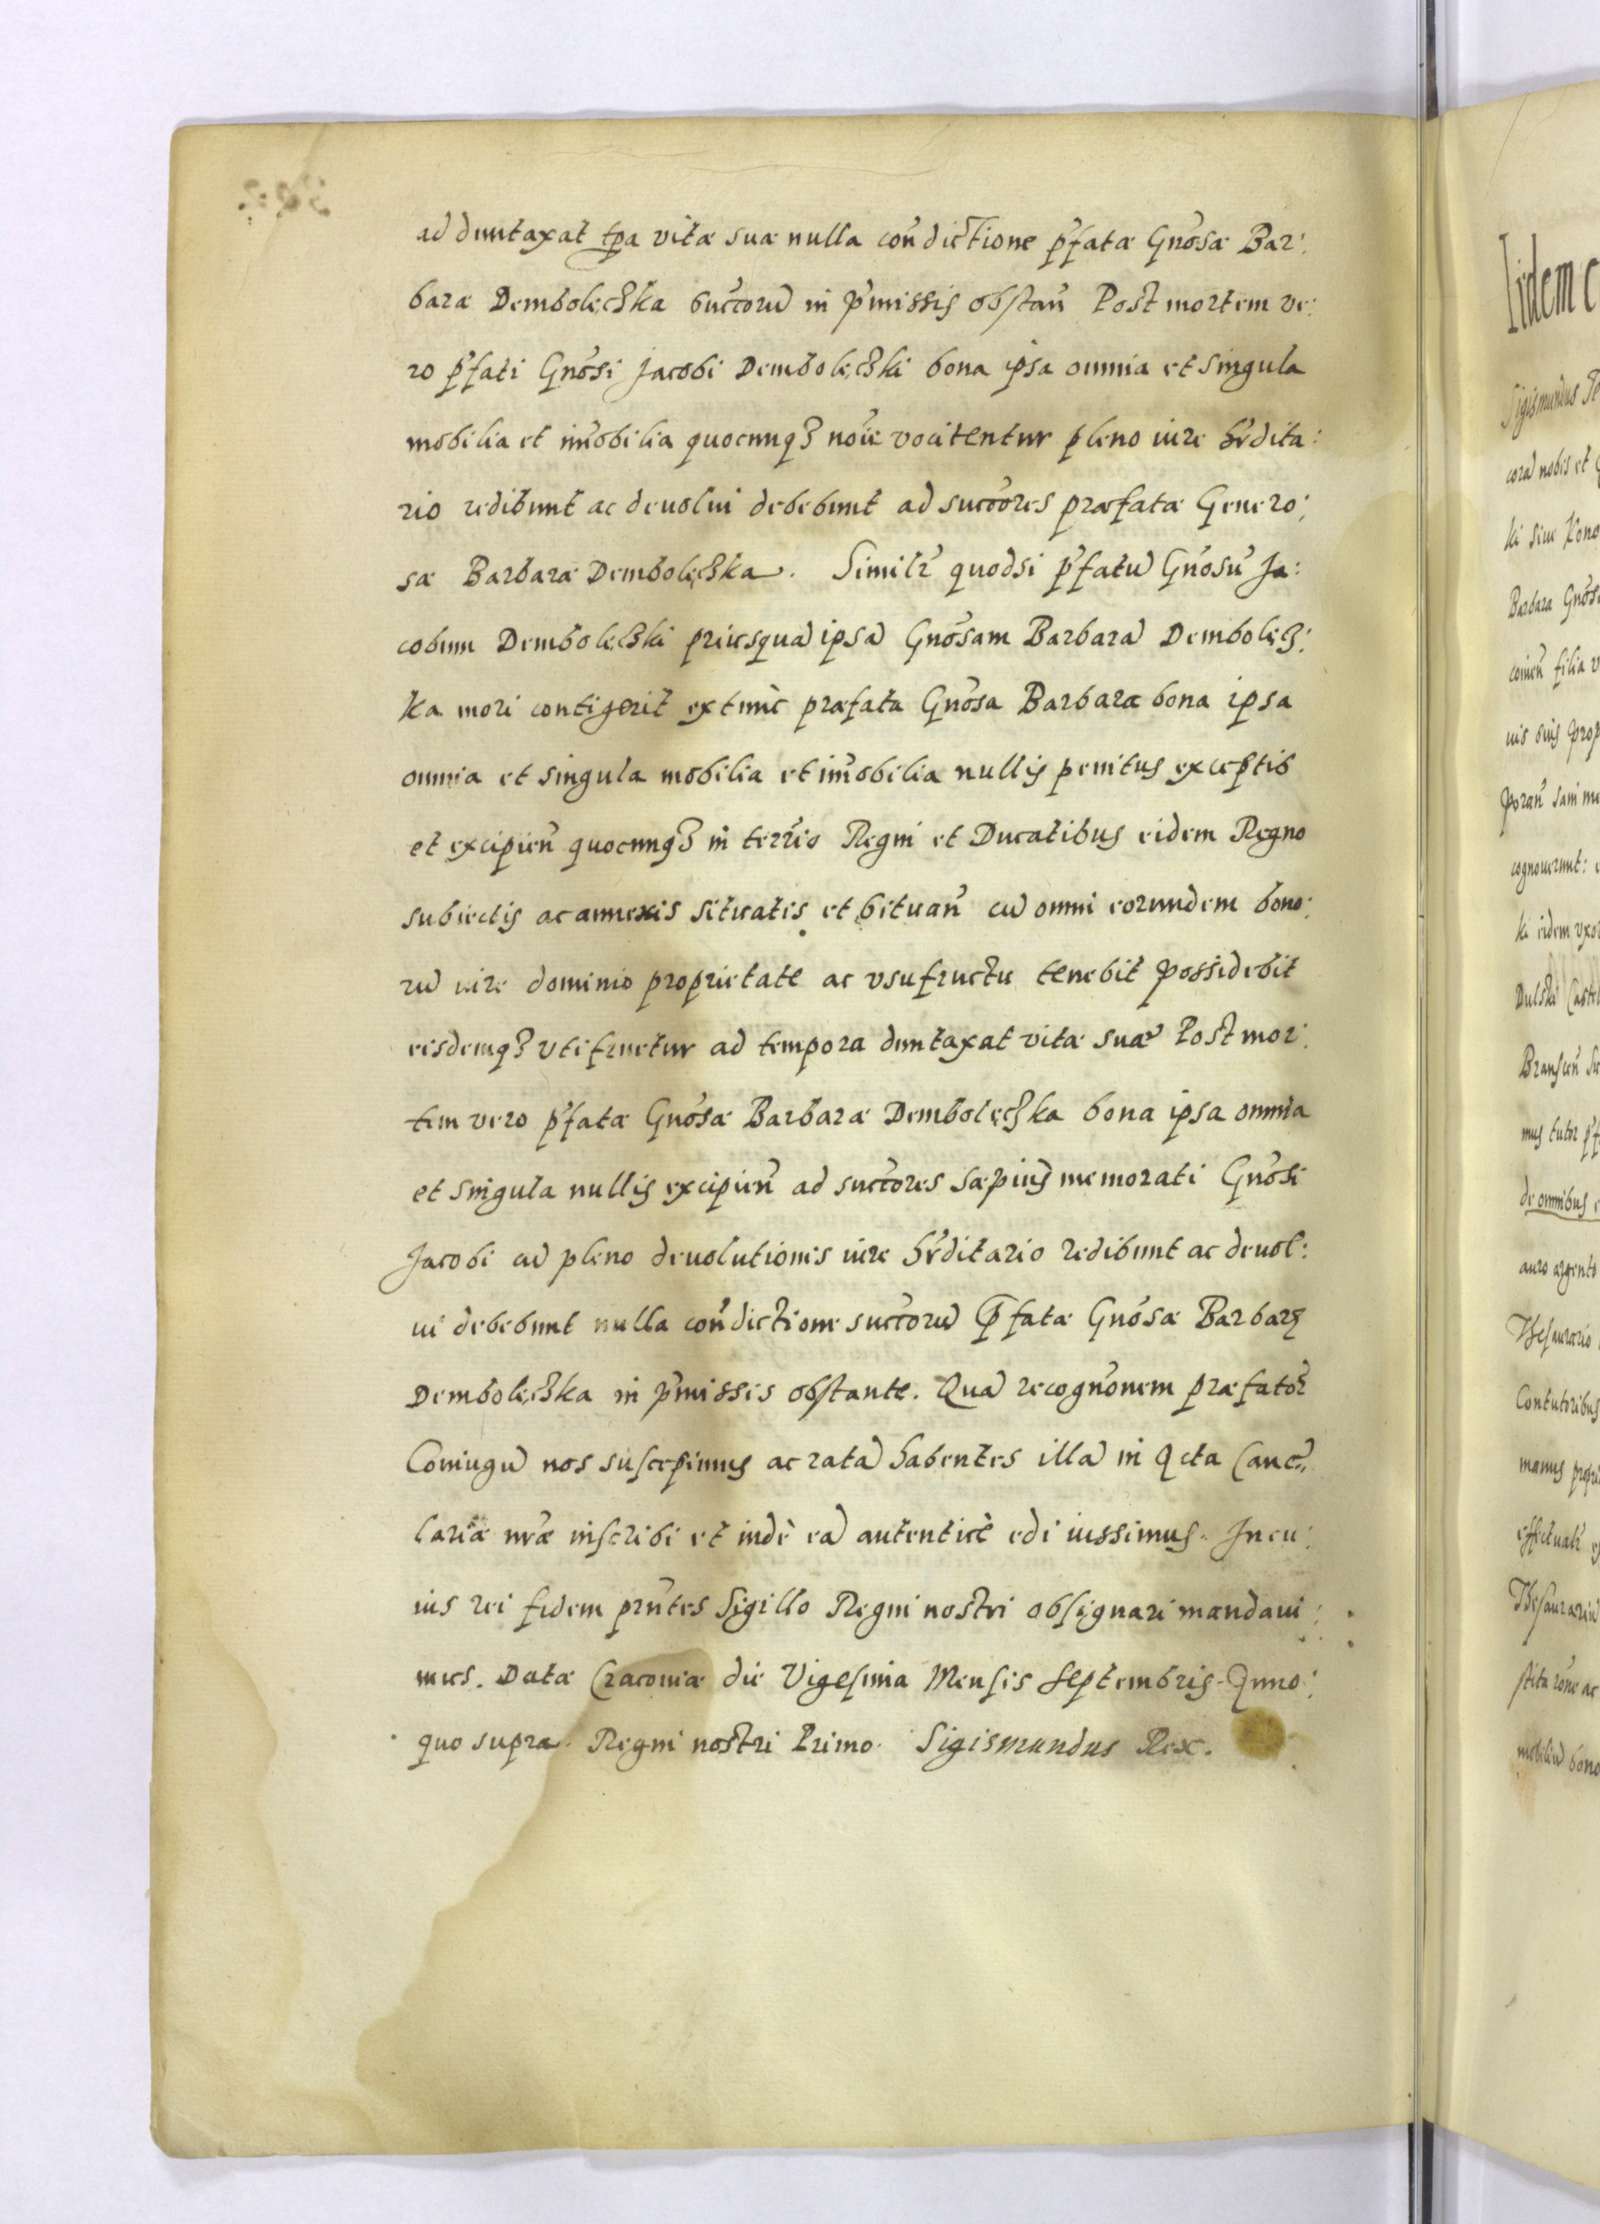 ad duntaxat tpa vitæ suæ nulla con̄dictione p̄fatæ Gnōsæ Bar:
baræ Dembolęczka succōrū in p̄missis obstan̄ Post mortem ve:
ro p̄fati Gnōsi Jacobi Dembolęczki bona ipsa omnia et singula
mobilia et im̄obilia quocunqȝ nōīe vocitentur pleno iure hr̄dita:
rio redibunt ac devolui debebunt ad succōres præfatæ Genero:
sæ Barbaræ Dembolęczka. Similr̄ quodsi p̄fatū Gnōsū Ja:
cobum Dembolęczki priusquā ipsā Gnōsam Barbarā Dembolęcz:
ka mori contigerit extunc præfata Gnōsa Barbara bona ipsa
omnia et singula mobilia et im̄obilia nullis penitus exceptis
et excipien̄ quocunqȝ in terris Regni et Ducatibus eidem Regno
subiectis ac annexis situatis et situan̄ cū omni eorundem bono:
rū iure dominio proprietate ac vsufructu tenebit possidebit
eisdemqȝ vtifruetur ad tempora duntaxat vitæ suæ Post mor:
tem vero p̄fatæ Gnōsæ Barbaræ Dembolęczka bona ipsa omnia
et singula nullis excipien̄ ad succōres sæpius memorati Gnōsi
Jacobi cū pleno devolutionis iure hr̄ditario redibunt ac devol:
ui debebunt nulla con̄dictione succōrū p̄fatæ Gnōsæ Barbarę
Dembolęczka in p̄missis obstante. Quā recogn̄onem præfatoꝝ
Coniugū nos suscepimus ac ratā habentes illā in Acta Canc̄„
lariæ nr̄æ inscribi et indè eā autenticè edi iussimus. In cu:
ius rei fidem prn̄tes Sigillo Regni nostri obsignari mandaui:
mus. Datæ Cracoviæ die Vigesima Mensis Septembris. Anno:
quo supra. Regni nostri Primo. Sigismundus Rex.
Iidem c
Sigismundus
corā nobis et
ki siue Kono
Barbara Gnōs
filia v
uis suis prop
cognouerunt:
ki eidem vxor
Dulski Castel
mus tutor p̄f
de omnibus e
auro argento
Thesaurario
Contutoribus
manus propri
effectualr̄
Thesaurariū
mobiliū bono